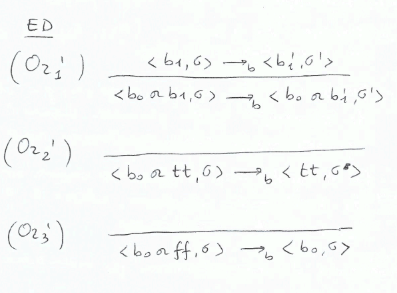 ED
(Or₁') <b₁, σ> →b <b₁', σ'>
<b₀ or b₁, σ> →b <b₀ or b₁', σ'>
(Or₂')
<b₀ or tt, σ> →b <tt, σ>
(Or₃')
<b₀ or ff, σ> →b <b₀, σ>